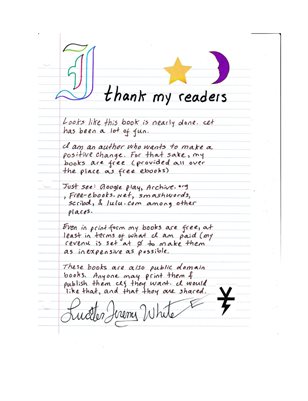 I
thank my readers
Looks like this book is nearly done. It
has been a lot of fun.
I am an author who wants to make a
positive change. For that sake, my
books are free (provided all over
the place as free ebooks)
Just see: Google play, Archive.org
, Free-ebooks.net, smashwords,
scribd, & lulu.com among other
places.
Even in print form my books are free, at
least in terms of what I am paid (my
revenue is set at 0 to make them
as inexpensive as possible.
These books are also public domain
books. Anyone may print them &
publish them if they want. I would
like that, and that they are shared.
Lucifer Jeremy White